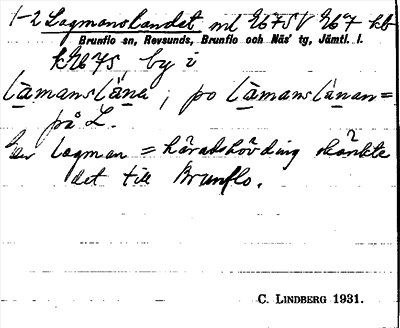 1-2 Lagmanslandet nl G675 V G67 kb
Brunflo sn, Revsunds, Brunflo och Näs' tg, Jämtl. l.
k G675, by i
lamanslána, po lamanslánan=
på L.
En lagman = häradshövding skänkte
det till Brunflo.
C. LINDBERG 1931.